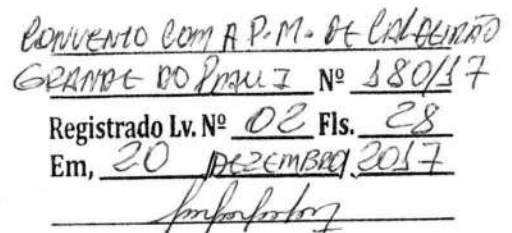 CONVENIO COM A P.M. DE CALDEIRÃO
GRANDE DO PIAUI Nº 180/17
Registrado Lv. Nº 02 Fls. 28
Em, 20 DEZEMBRO 2017